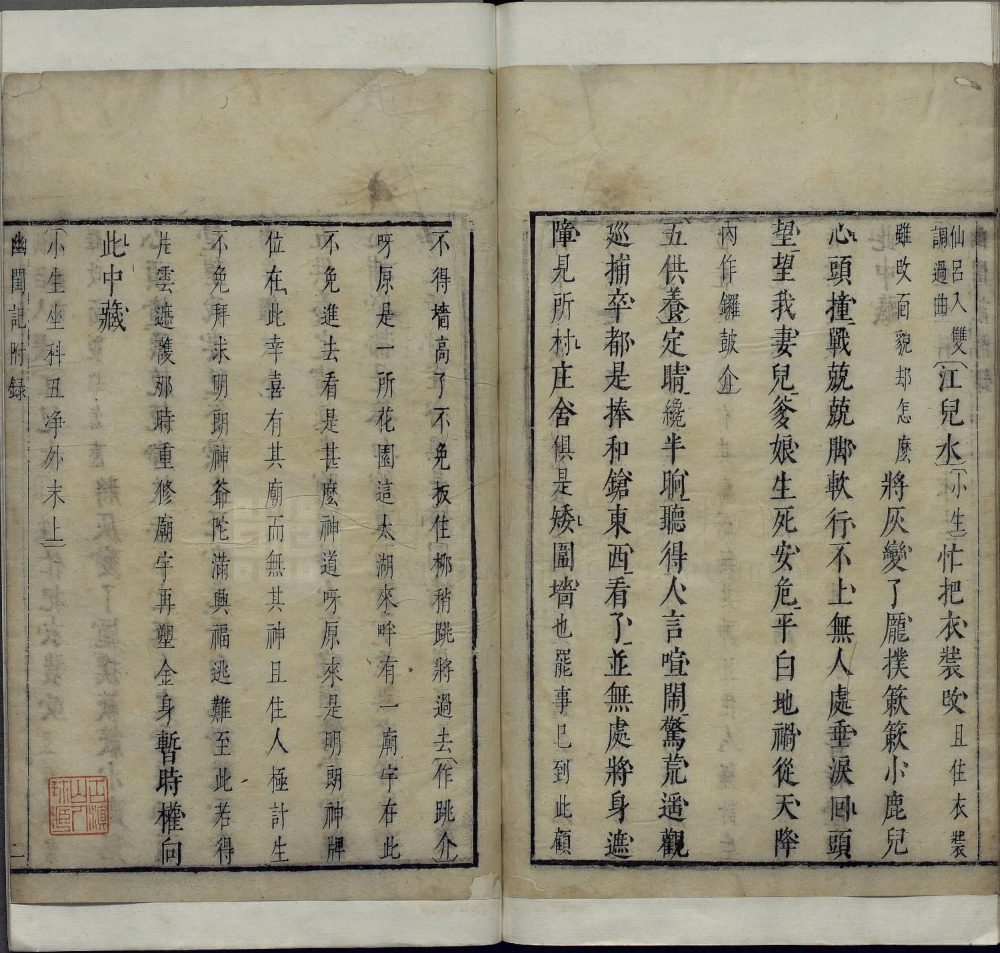 仙呂入雙調過曲〔江兒水〕〔小生〕忙把衣裝攺且住衣裝
雖攺面貌却怎麽將灰變了龎撲簌簌小鹿兒
心頭撞戰兢兢脚軟行不上無人處垂淚回頭
望望我妻兒爹娘生死安危平白地禍從天降
内作鑼鼓介
〔五供養〕定睛纔半晌聽得人言喧鬧驚荒遥觀
巡捕卒都是捧和鎗東西看了並無處將身遮
障見所村庄舍俱是矮圍墻也罷事已到此顧
不得墻高了不免扳住柳稍跳將過去〔作跳介〕
呀原是一所花園這太湖來畔有一廟宇在此
不免進去看是甚麽神道呀原來是明朗神牌
位在此幸喜有其廟而無其神且住人極計生
不免拜求明朗神爺陀滿興福逃難至此若得
片雲遮護那時重修廟宇再塑金身暫時權向
此中藏
〔小生坐科丑净外末上〕
幽閨記附録
二